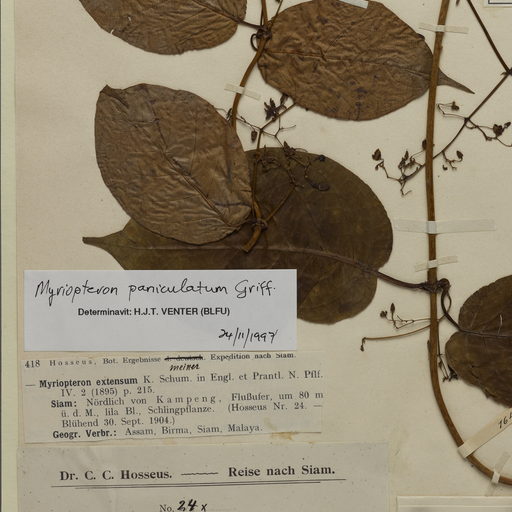 Myriopteron paniculatum Griff.
Determinavit: H.J.T. VENTER (BLFU)
24/11/1997
418 Hosseus, Bot. Ergebnisse d. deutsch. Expedition nach Siam.
meiner
— Myriopteron extensum K. Schum. in Engl. et Prantl. N. Pflf.
IV. 2 (1895) p. 215.
Siam: Nördlich von Kampeng, Flußufer, um 80 m
ü. d. M., lila Bl., Schlingpflanze. (Hosseus Nr. 24. —
Blühend 30. Sept. 1904.)
Geogr. Verbr.: Assam, Birma, Siam, Malaya.
Dr. C. C. Hosseus. — Reise nach Siam.
No. 24 x